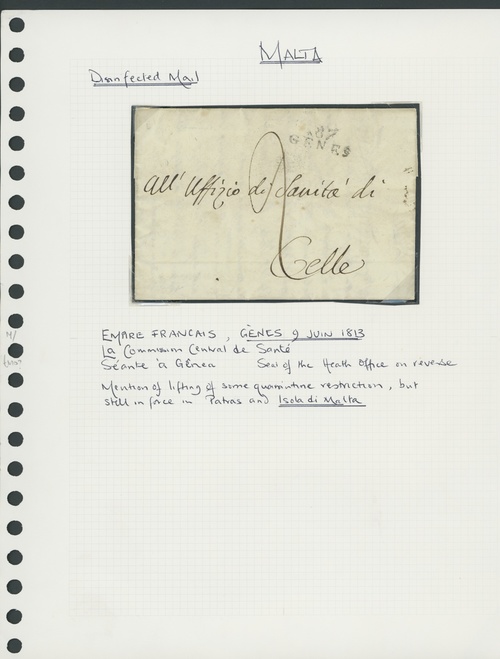 MALTA
Disinfected Mail
87
GÊNES
All' Uffizio di Sanità di
Celle
EMPIRE FRANCAIS, GÈNES 9 JUIN 1813
La Commission Central de Santé
Séante à Gênea Seal of the Heath Office on reverse
Mention of lifting of some quarantine restriction, but
still in force in Patras and Isola di Malta